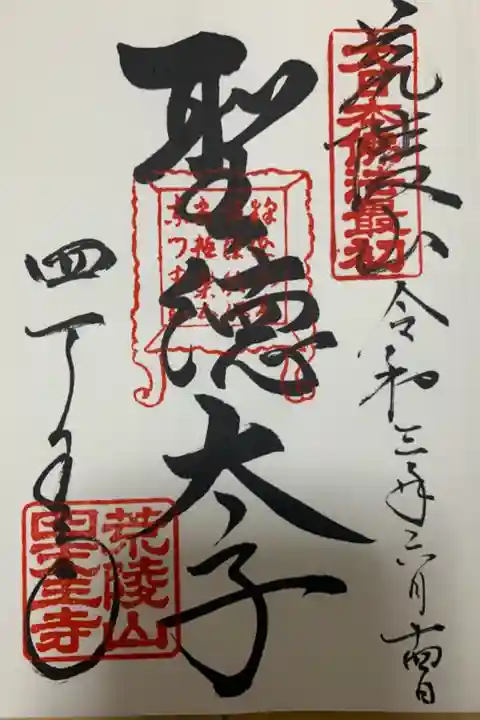 荒陵山 令和三年六月十四日
大日本佛法最初
聖徳太子
四天王寺
荒陵山
四天王寺